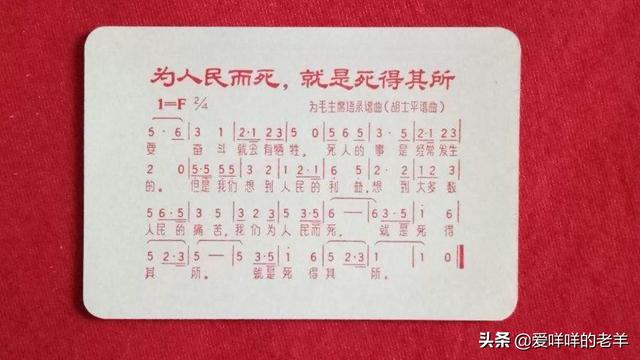 为人民而死，就是死得其所
1=F 2/4 为毛主席语录谱曲（胡士平谱曲）
5 · 6 | 3 1 | 2·1 23 | 5 0 | 565 3 | 3·5 | 2·1 23 |
要 奋斗 就会有牺牲， 死人的 事 是 经常发生
2 0 | 5·5 55 | 3 2 | 1 2·1 | 6 5 | 2·2 | 12 3 |
的。 但是我们 想到 人民的 利益，想 到 大多数
56·5 | 3 5 | 3 23 | 5 3·5 | 6 — | 63·5 | i 6 |
人民的 痛苦，我们为 人民而死， 就是 死得
5 2·3 | 5 — | 5 3·5 | i 6 | 5 2·3 | i — | i 0
其 所。 就是死 得 其 所。
头条 @爱咩咩的老羊